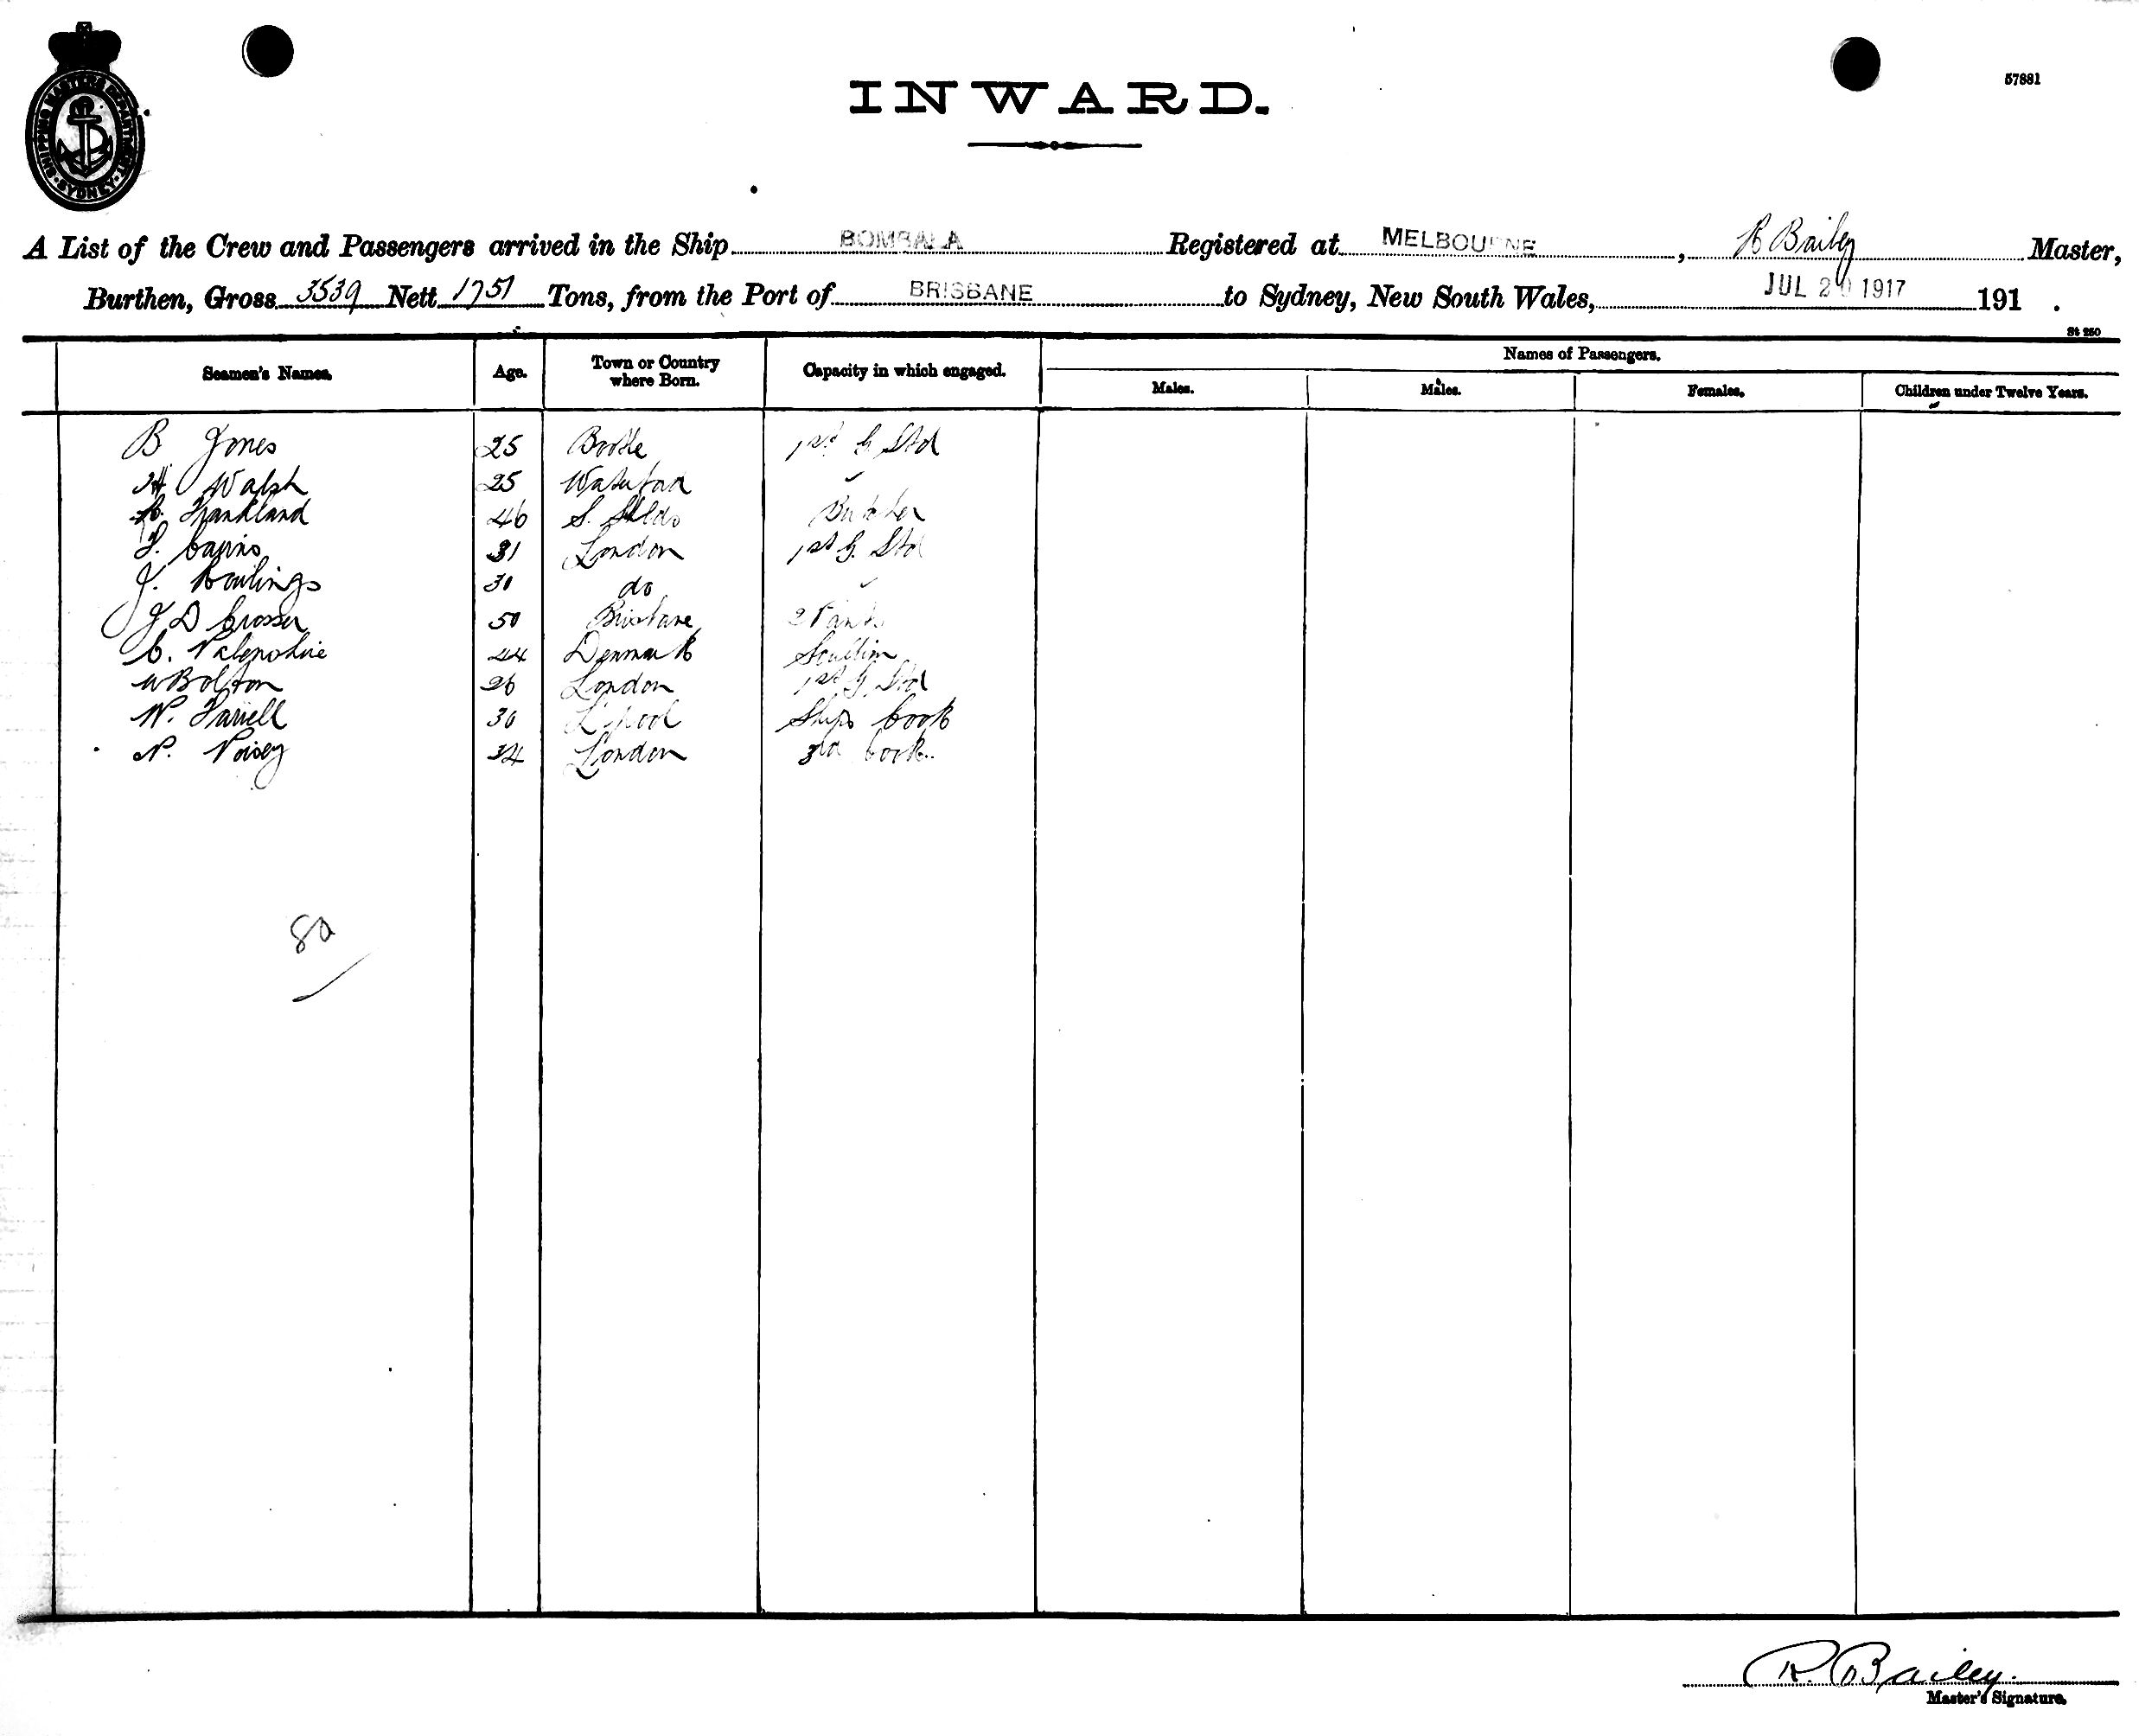 SHIPPING MASTERS DEPARTMENT SYDNEY
57881
INWARD.
A List of the Crew and Passengers arrived in the Ship BOMBALA Registered at MELBOURNE, R Bailey Master,
Burthen, Gross 3539 Nett 1751 Tons, from the Port of BRISBANE to Sydney, New South Wales, JUL 20 1917 191 .
St 250
Seamen's Names. Age. Town or Country where Born. Capacity in which engaged. Names of Passengers.
Males. Males. Females. Children under Twelve Years.
B Jones 25 Bootle 1st G Std
H Walsh 25 Waterford "
Frankland 46 S. Shlds Butcher
Cairns 31 London 1st G. Std
J. Rawlings 30 do "
J D Crosser 50 Brisbane 2 Pant
C. 44 Denmark Scullion
W Bolton 26 London 1st G. Std
W. Farrell 30 L'pool Ships Cook
N. Voisey 34 London 3rd Cook
80
R. Bailey
Master's Signature.